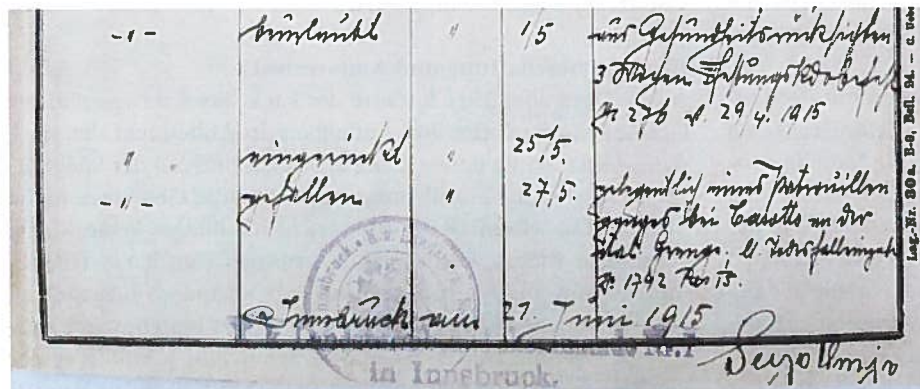 -"- beurlaubt " 1/5 aus Gesundheitsrücksichten
3 Wochen Festungskdobefehl
N 236 v. 29/4. 1915
" eingerückt " 25/5.
-"- gefallen " 27/5. gelegentlich eines Patrouillen
ganges bei Casotto an der
ital. Grenze, lt. Todesfalleingabe
N. 1792
Innsbruck am 21. Juni 1915
in Innsbruck.
Lag.-Nr. 260a.